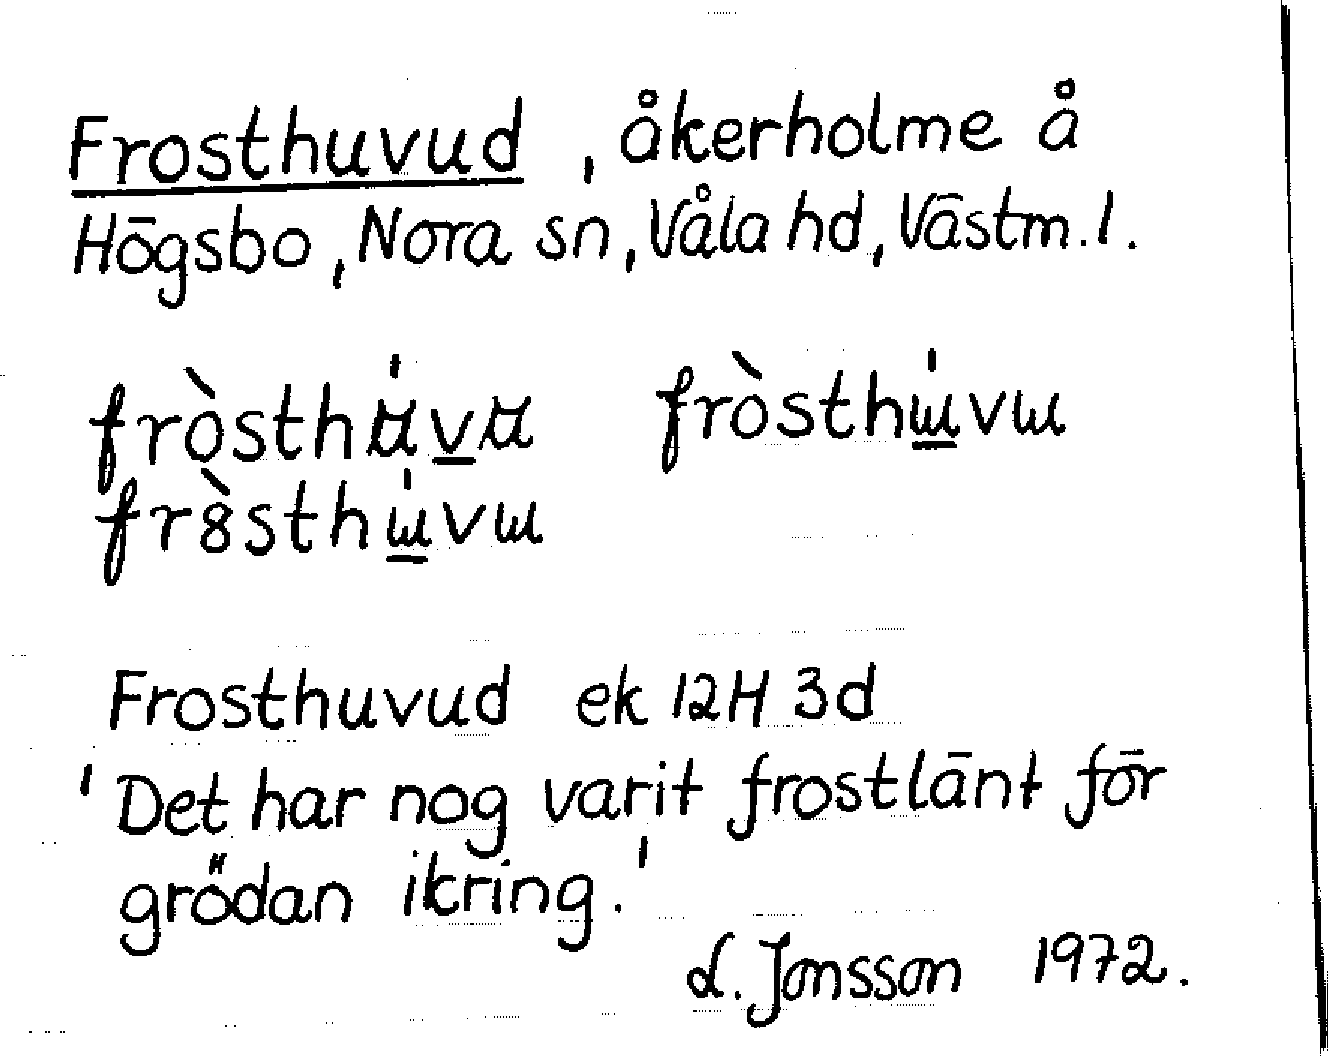 Frosthuvud, åkerholme å
Högsbo, Nora sn, Våla hd, Västm. l.
fròsthú̲v̲u fròsthɯ̲́vɯ
fr8̀sthɯ̲́vɯ
Frosthuvud ek 12H 3d
'Det har nog varit frostlänt för
grödan ikring.'
L. Jonsson 1972.